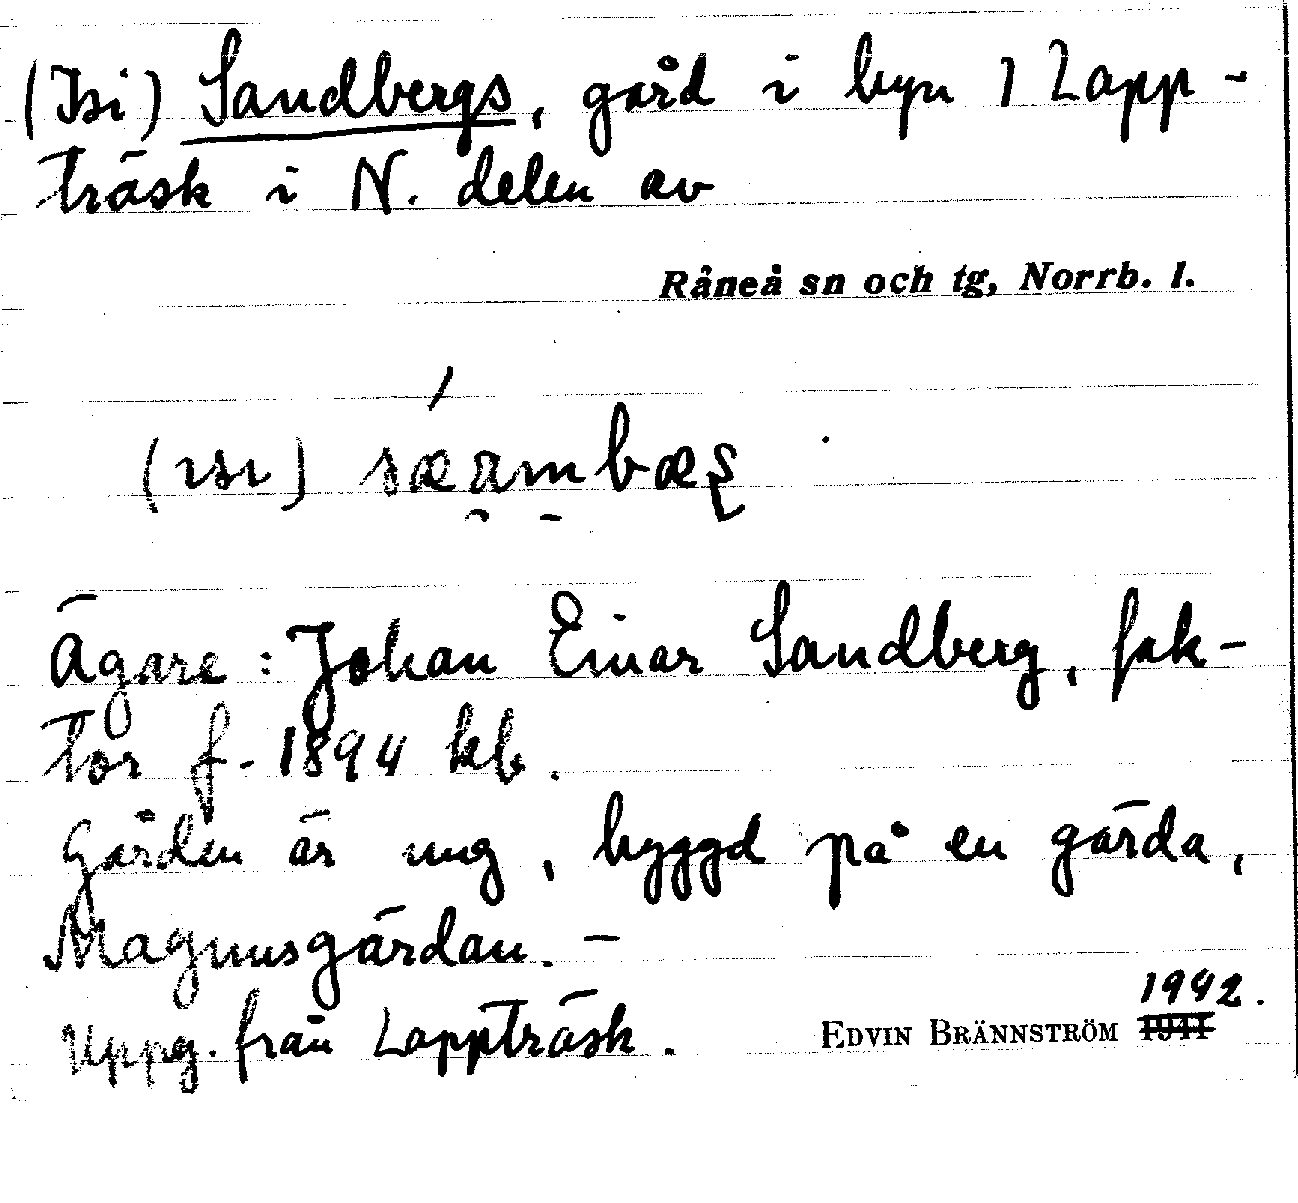 (Isi) Sandbergs, gård i byn 1 Lapp-
träsk i N. delen av
Råneå sn och tg, Norrb. l.
(ısı) sæambæş
Ägare: Johan Einar Sandberg, fak-
tor f. 1894 kb.
Gården är ung, byggd på en gärda,
Magnusgärdan. -
Uppg. från Lappträsk.
1942.
EDVIN BRÄNNSTRÖM 1941